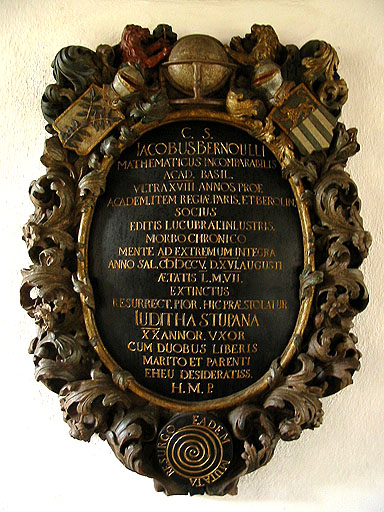 C. S.
IACOBUS BERNOULLI
MATHEMATICUS INCOMPARABILIS
ACAD. BASIL.
VLTRA XVIII ANNOS PROF.
ACADEM. ITEM REGIÆ PARIS. ET BEROLIN
SOCIUS
EDITIS LUCUBRAT. INLUSTRIS.
MORBO CHRONICO
MENTE AD EXTREMUM INTEGRA
ANNO SAL. CIƆIƆCCV. D. XVI. AUGUSTI
ÆTATIS L. M. VII.
EXTINCTUS
RESURRECT. PIOR. HIC PRÆSTOLATUR
IUDITHA STUPANA
XX ANNOR. VXOR
CUM DUOBUS LIBERIS
MARITO ET PARENTI
EHEU DESIDERATISS.
H. M. P.
EADEM MUTATA RESURGO